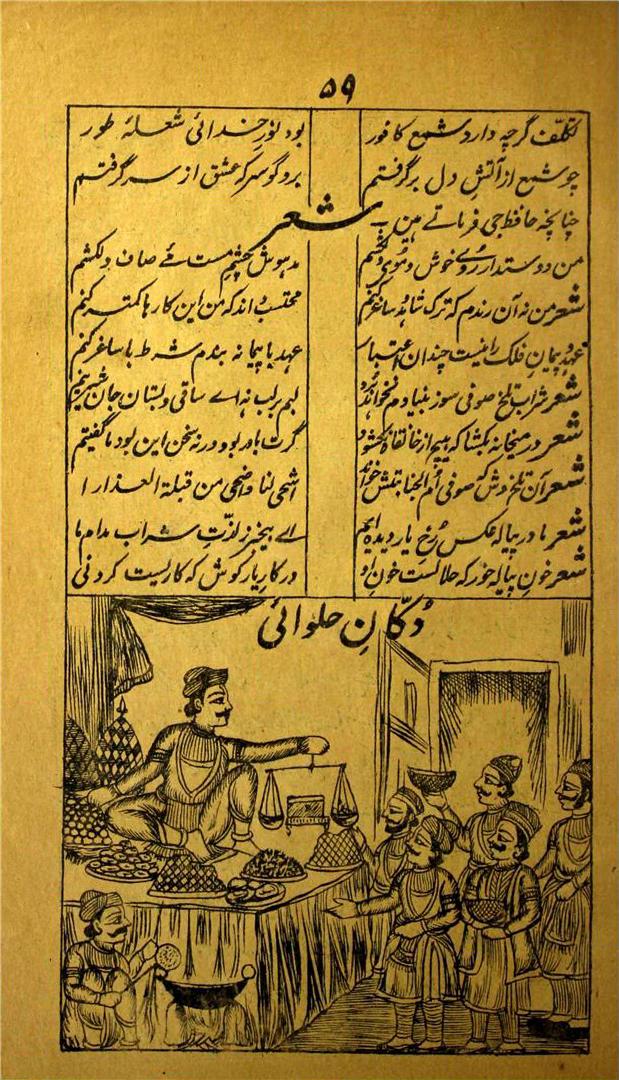 ۵۹
تکلف گرچہ دارد شمع کافور بود نور خدائی شعلۂ طور
چو شمع از آتش دل برگرفتم برو گو سر کہ عشق از سر گرفتم
چنانچہ حافظ جی فرماتے ہین
شعر
من دوستدار روے خوش و موی دلکشم مدہوش چشم مست مے صاف دلکشم
شعر من نہ آن رندم کہ ترک شاہد و ساغر کنم محتسب داند کہ من این کارہا کمتر کنم
عہد و پیمان فلک را نیست چندان اعتبار عہد با پیمانہ بندم شرط با ساغر کنم
شعر شراب تلخ صوفی سوز بنیادم بخواہد برد لبم بر لب نہ اے ساقی و بستان جان شیرینم
شعر در میخانہ بکشا کہ ہیچ از خانقاہ نکشود گرت باور بود ورنہ سخن این بود ما گفتیم
شعر آن تلخ وش کہ صوفی ام الخبائثش خواند اشہی لنا واحلی من قبلة العذارا
شعر ما در پیالہ عکس رخ یار دیدہ ایم اے بیخبر ز لذت شراب مدام ما
شعر خون پیالہ خور کہ حلالست خون او در کار یار کوش کہ کاریست کردنی
دُکّانِ حلوائی